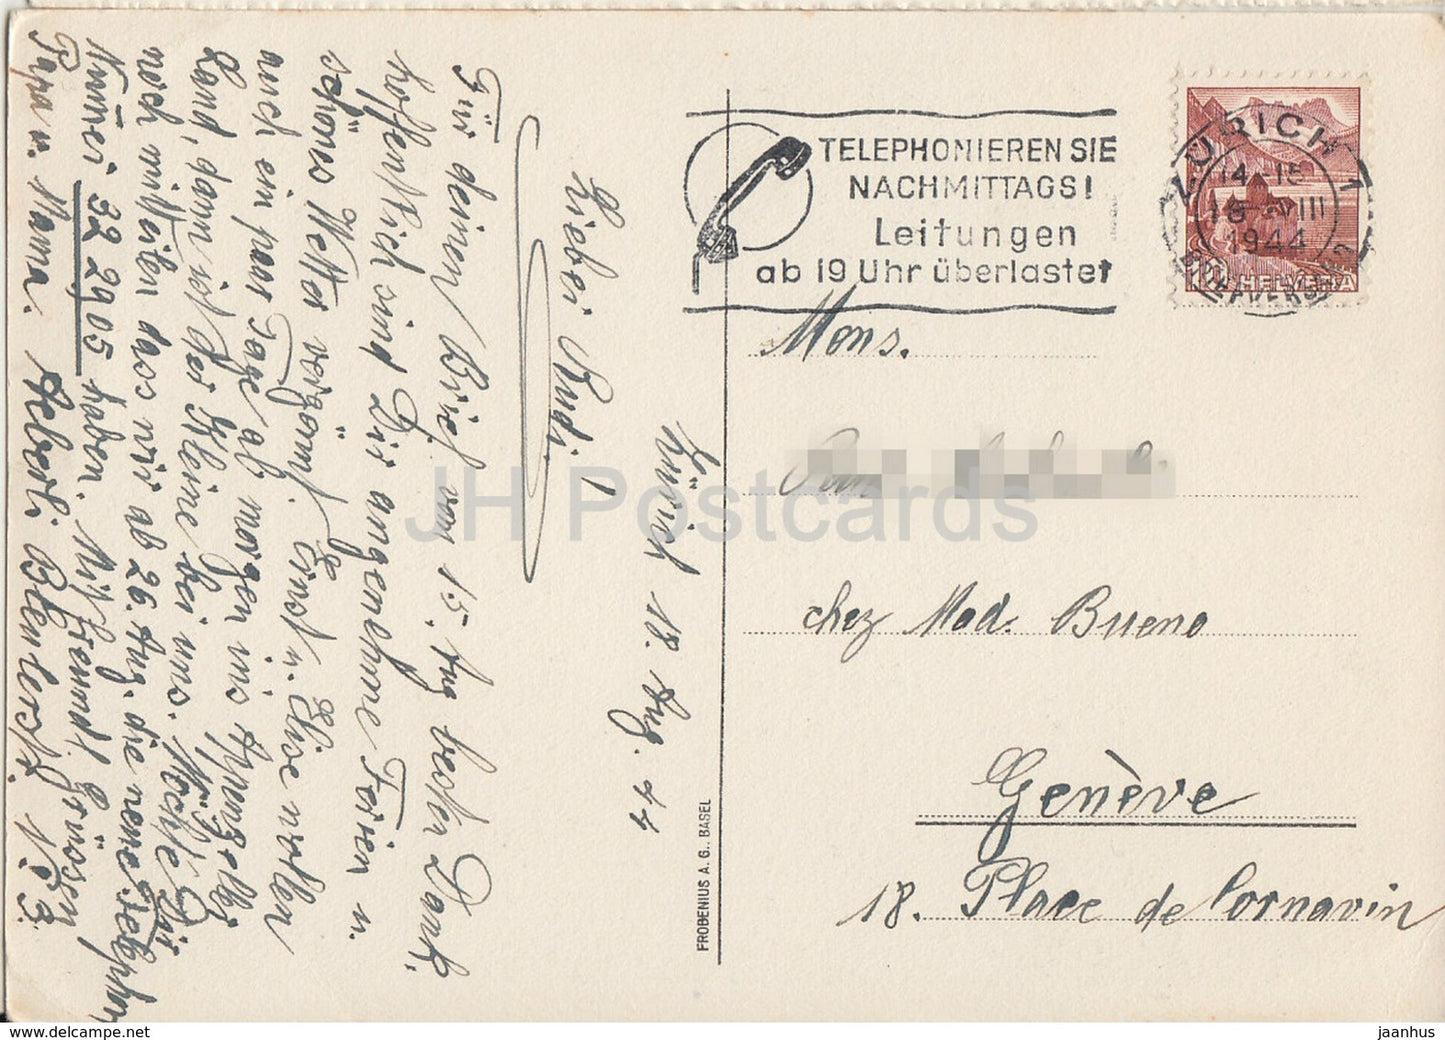 Zürich 18. Aug. 44
Lieber Rudi!
Für deinen Brief vom 15. Aug besten Dank,
hoffentlich sind Dir angenehme Ferien u.
schönes Wetter vergönnt. Ernst u. Elise wollen
auch ein paar Tage ab morgen ins
Land, dann ist der Kleine bei uns. Möchte Dir
noch mitteilen dass wir ab 26. Aug. die neue Telephon
Numer 32 29 05 haben. Mit freundl Grüssen
Papa u. Mama.
TELEPHONIEREN SIE
NACHMITTAGS!
Leitungen
ab 19 Uhr überlastet
ZÜRICH 1
14-15
18 VIII
1944
BRIEFVERSAND
10 HELVETIA
Mons.
chez Mad. Bueno
Genève
18. Place de Cornavin
FROBENIUS A. G., BASEL
JH Postcards
www.delcampe.net
jaanhus